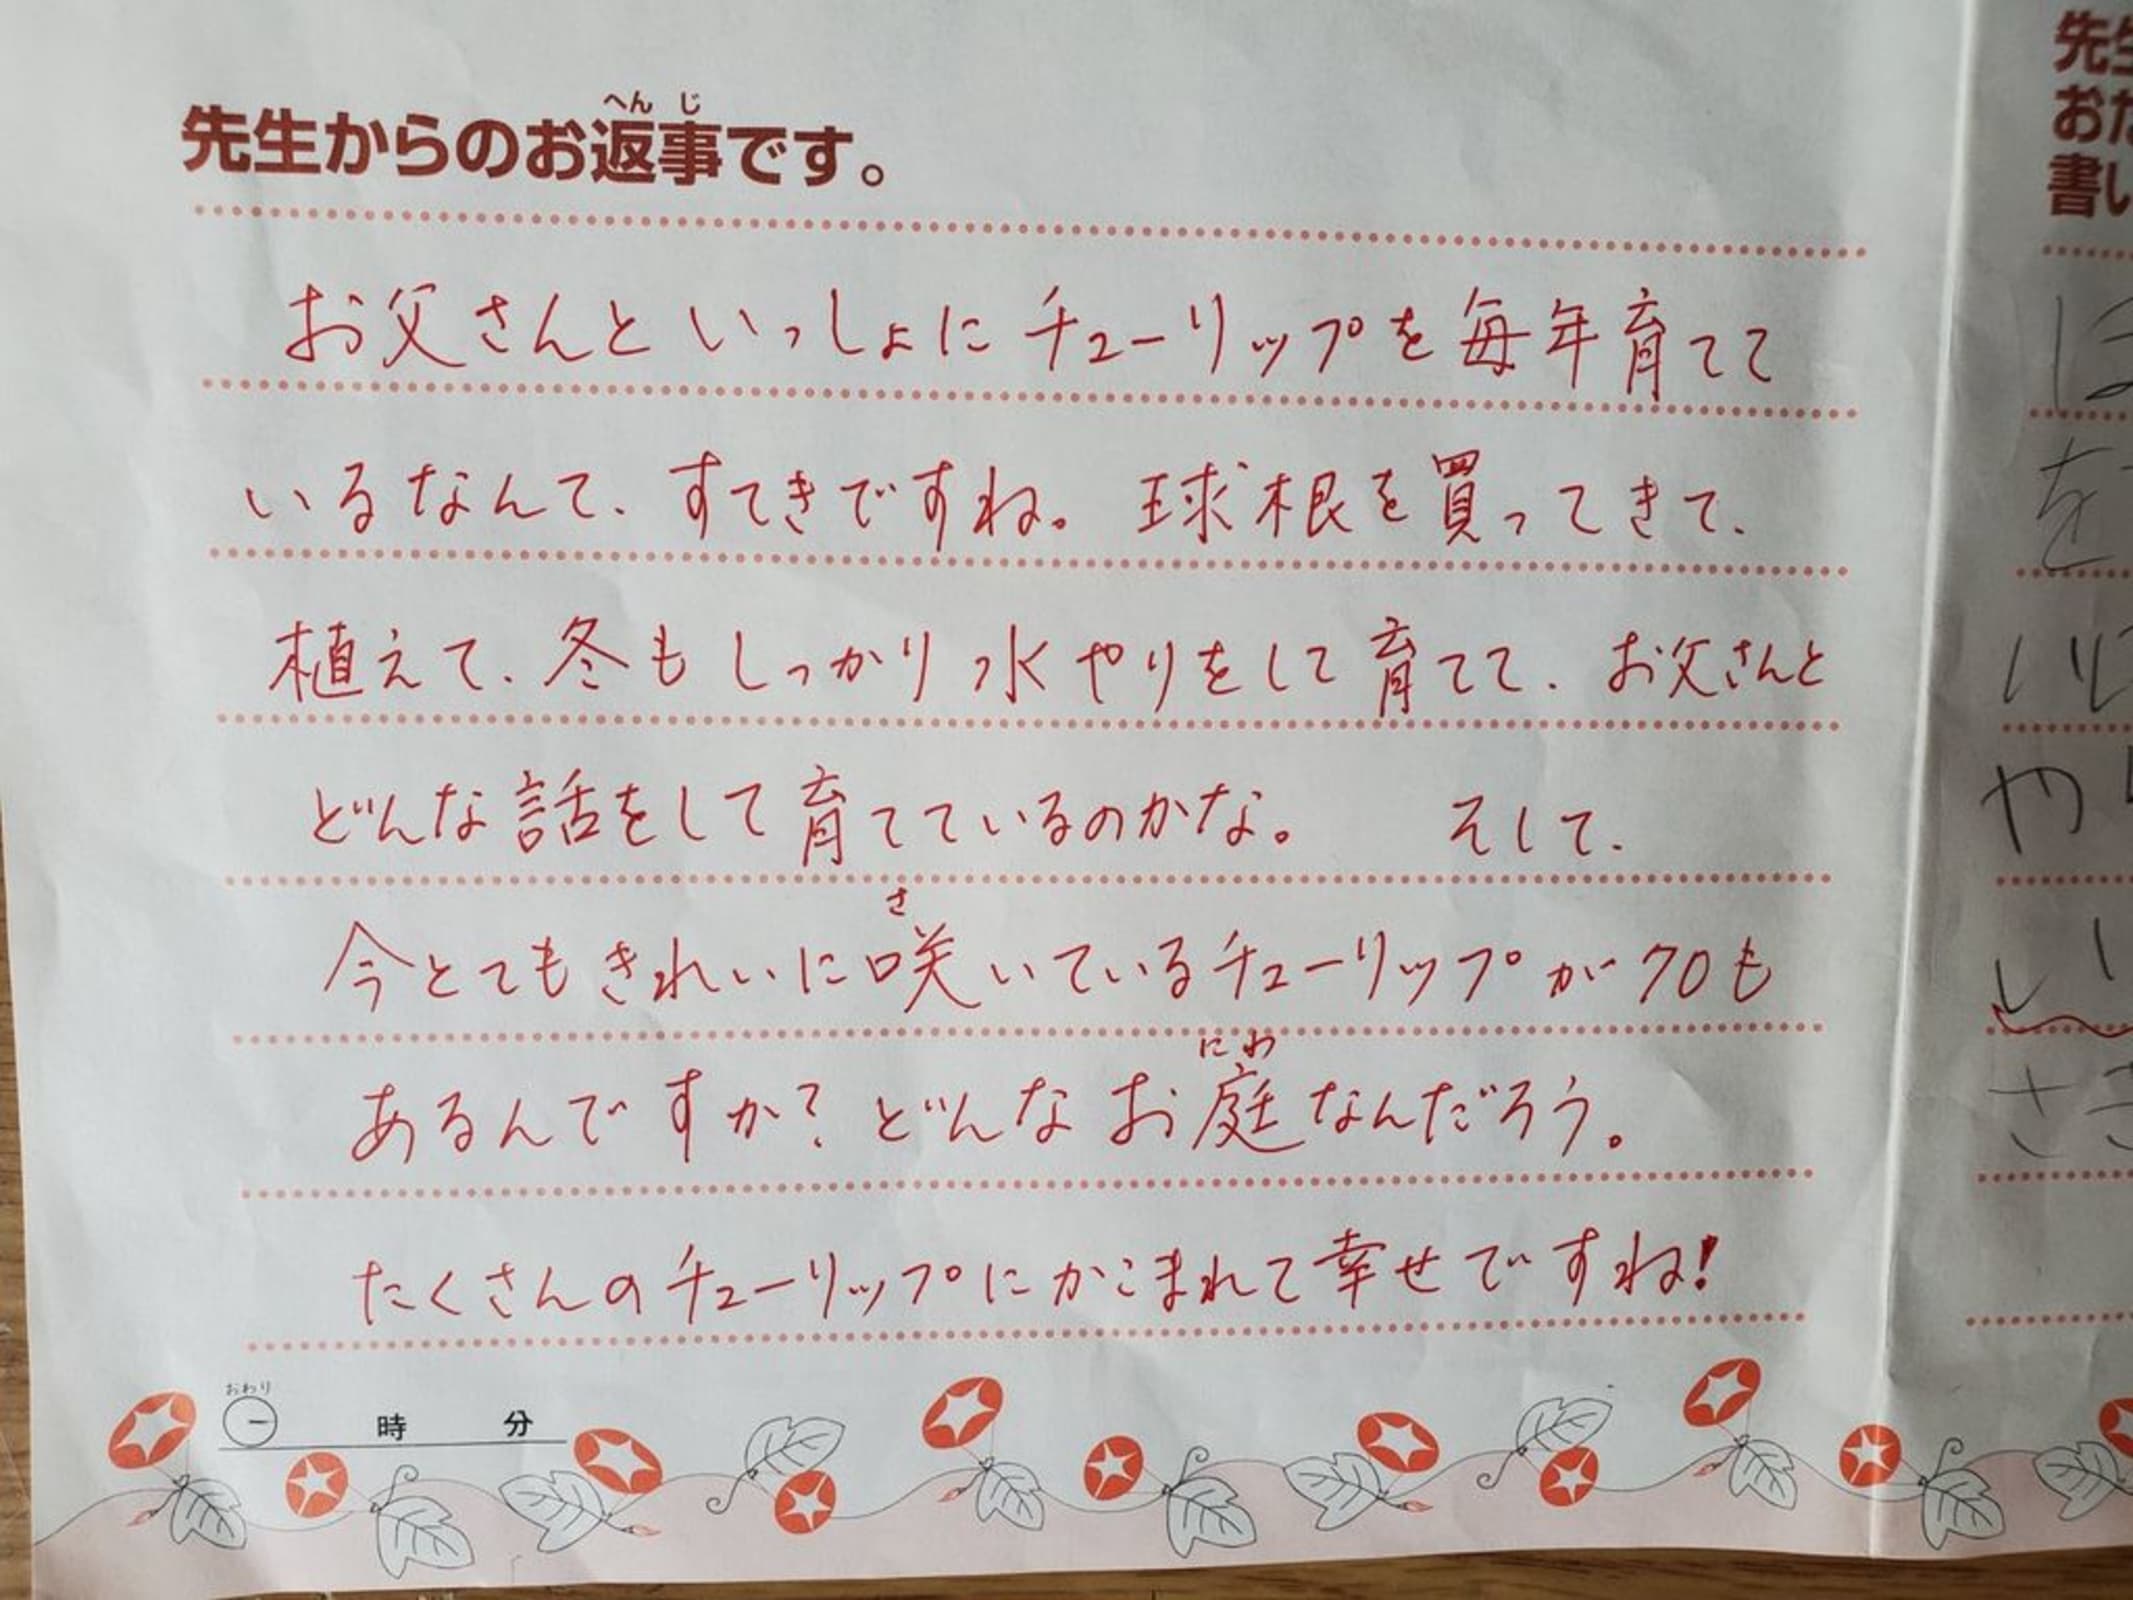 先生からのお返事です。
へんじ
お父さんといっしょにチューリップを毎年育てて
いるなんて、すてきですね。球根を買ってきて、
植えて、冬もしっかり水やりをして育てて、お父さんと
どんな話をして育てているのかな。 そして、
さ
今とてもきれいに咲いているチューリップが70も
にわ
あるんですか?どんなお庭なんだろう。
たくさんのチューリップにかこまれて幸せですね!
おわり
時 分
先生
おた
書い
ほ
を
や
さき